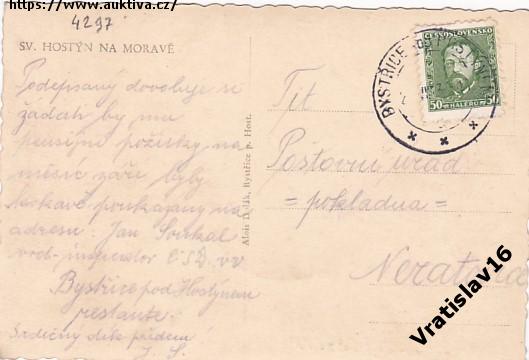 https://www.auktiva.cz/
4297
SV. HOSTÝN NA MORAVĚ
Podepsaný dovoluje si
žádati by mu
pensijní požitky na
měsíc září byly
laskavě poukázány na
adresu: Jan Soukal
vrch-inspektor ČSD. v.v.
Bystřice pod Hostýnem
restante.
Srdečný dík předem
J. S.
Alois Dolák, Bystřice p. Host.
ČESKOSLOVENSKO
50 HALÉŘŮ 50
BYSTŘICE POD HOSTÝNEM
Tit
Poštovní úřad
= pokladna =
Neratov
Vratislav16